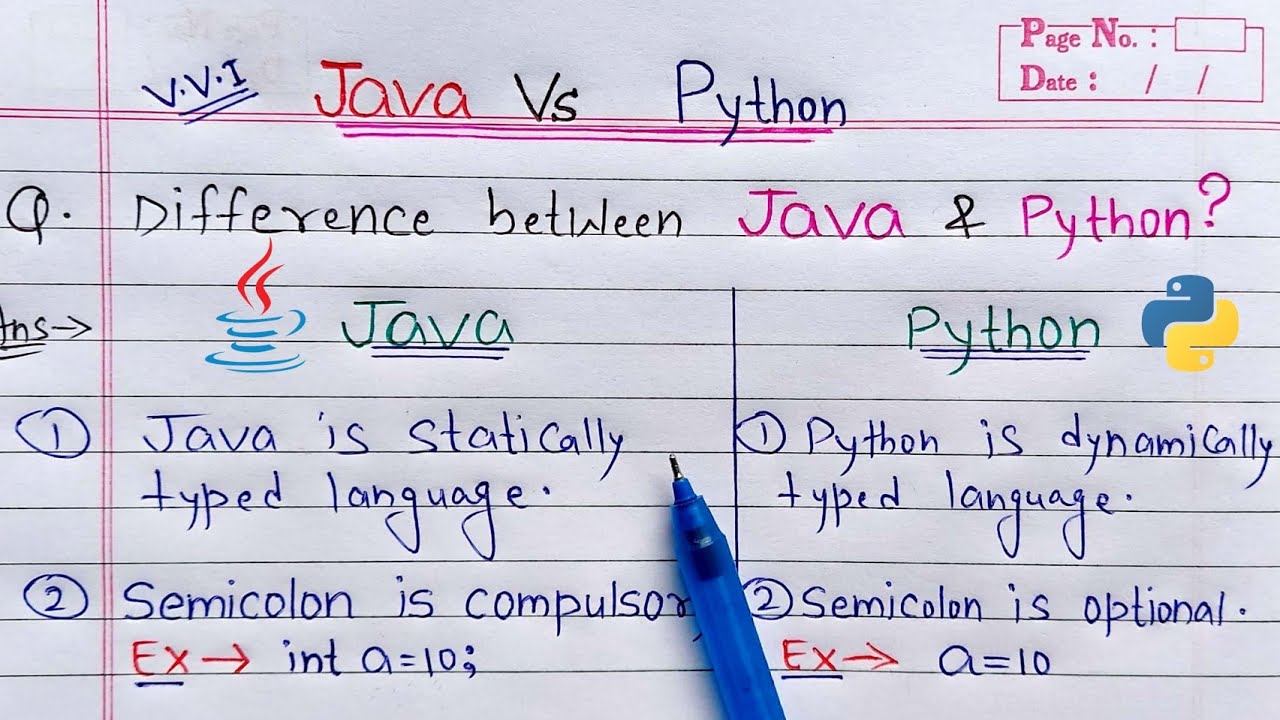 Page No. :
Date : / /
V.V.I Java Vs Python
Q. Difference between Java & Python?
Ans→ Java Python
① Java is statically
typed language.
① Python is dynamically
typed language.
② Semicolon is compulsory
Ex → int a=10;
② Semicolon is optional.
Ex → a=10